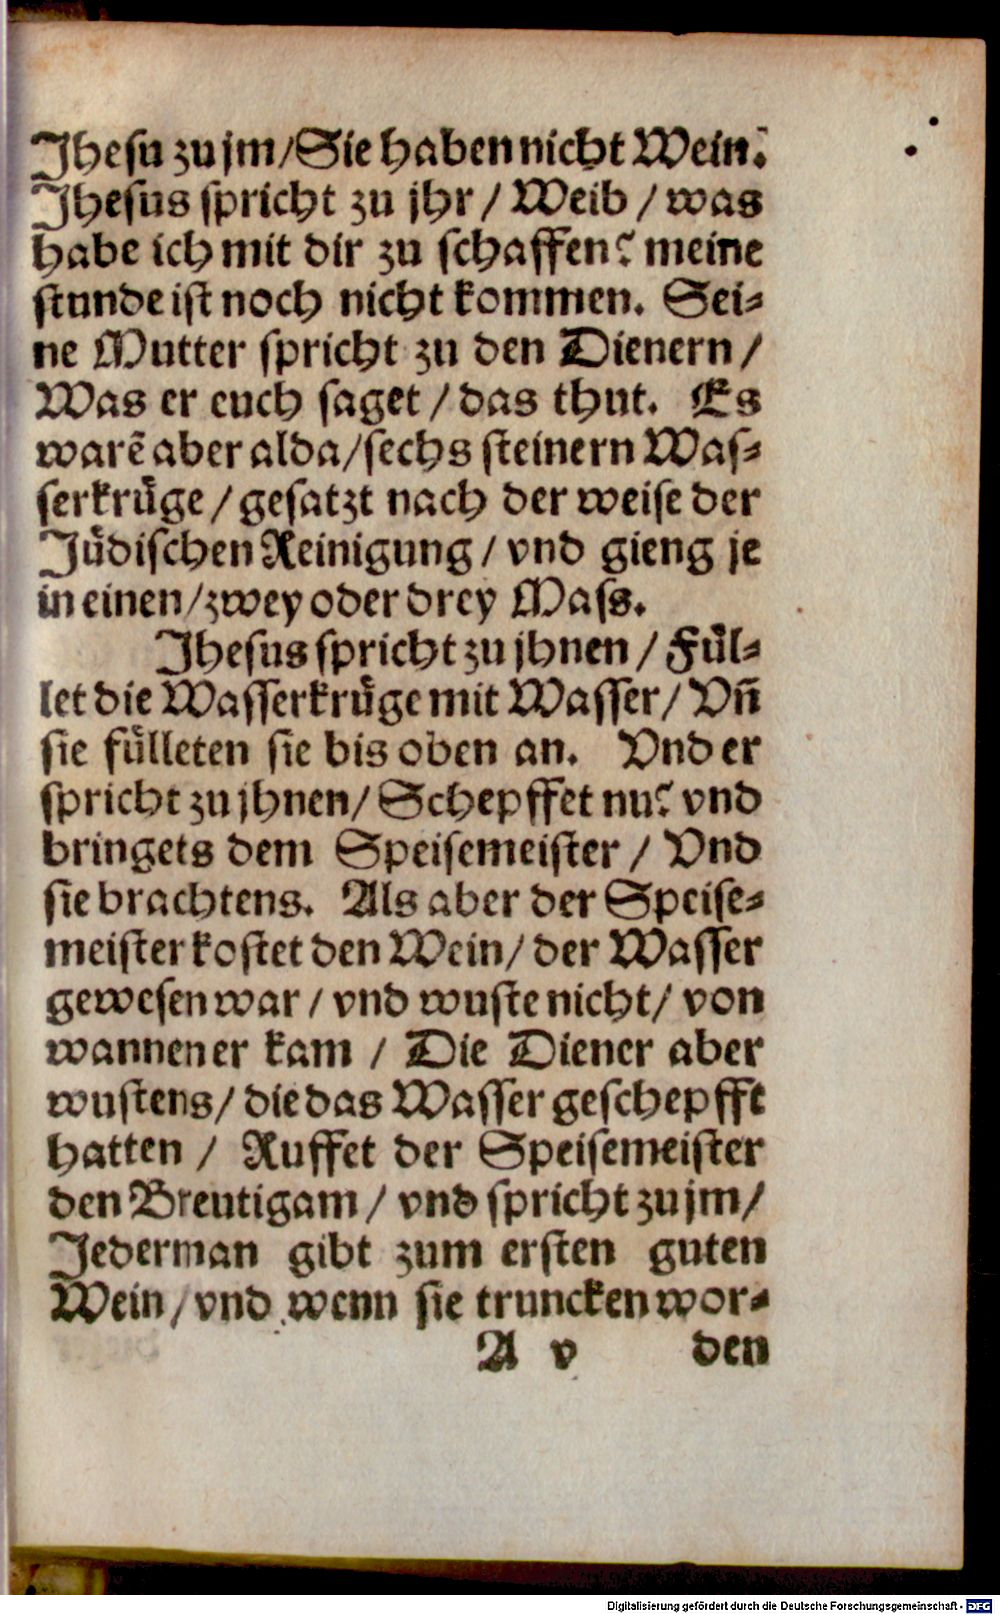 Jhesu zu jm/Sie haben nicht Wein.
Jhesus spricht zu jhr / Weib / was
habe ich mit dir zu schaffen? meine
stunde ist noch nicht kommen. Sei⸗
ne Mutter spricht zu den Dienern /
Was er euch saget / das thut. Es
warẽ aber alda/sechs steinern Was⸗
serkrüge / gesatzt nach der weise der
Jüdischen Reinigung / vnd gieng je
in einen/zwey oder drey Mass.
Jhesus spricht zu jhnen / Fül⸗
let die Wasserkrüge mit Wasser/ Vñ
sie fülleten sie bis oben an. Vnd er
spricht zu jhnen/ Schepffet nu? vnd
bringets dem Speisemeister / Vnd
sie brachtens. Als aber der Speise⸗
meister kostet den Wein/ der Wasser
gewesen war / vnd wuste nicht/ von
wannen er kam / Die Diener aber
wustens/ die das Wasser geschepfft
hatten / Ruffet der Speisemeister
den Breutigam / vnd spricht zu jm/
Jederman gibt zum ersten guten
Wein / vnd wenn sie truncken wor⸗
A v den
Digitalisierung gefördert durch die Deutsche Forschungsgemeinschaft - DFG